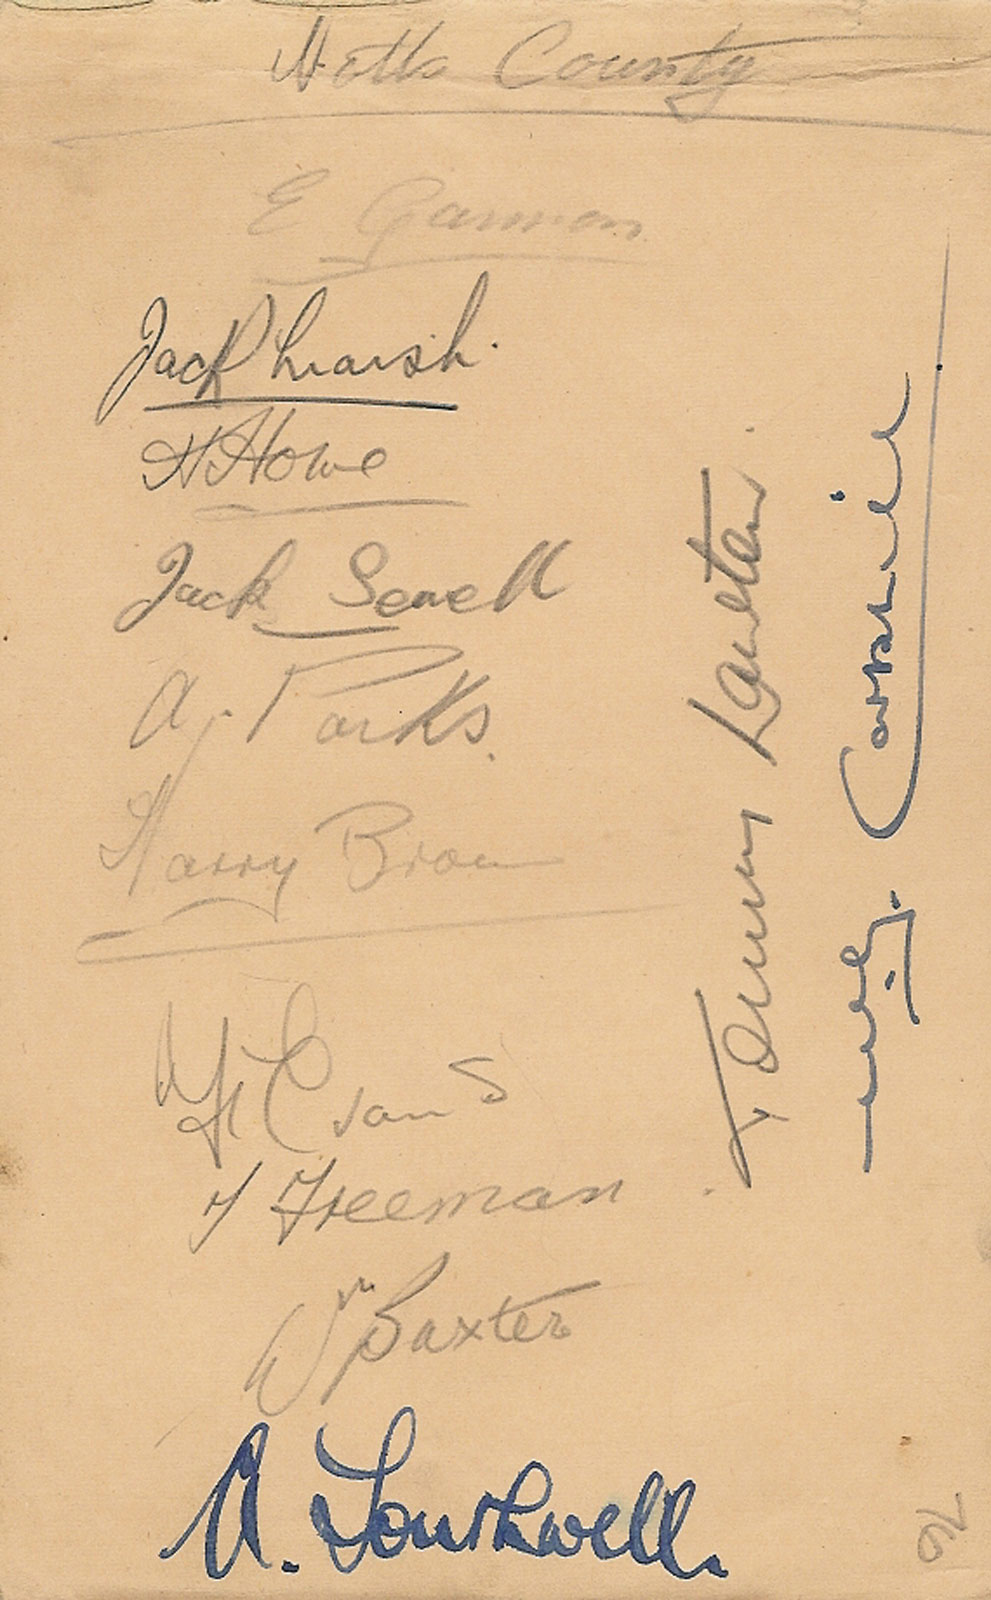 Notts County
E Gannon
Jack Marsh.
H Howe
Jack Sewell
A. Parks.
Harry Brown
Evans
F Freeman
Wm Baxter
A. Southwell.
Tommy Lawton
76